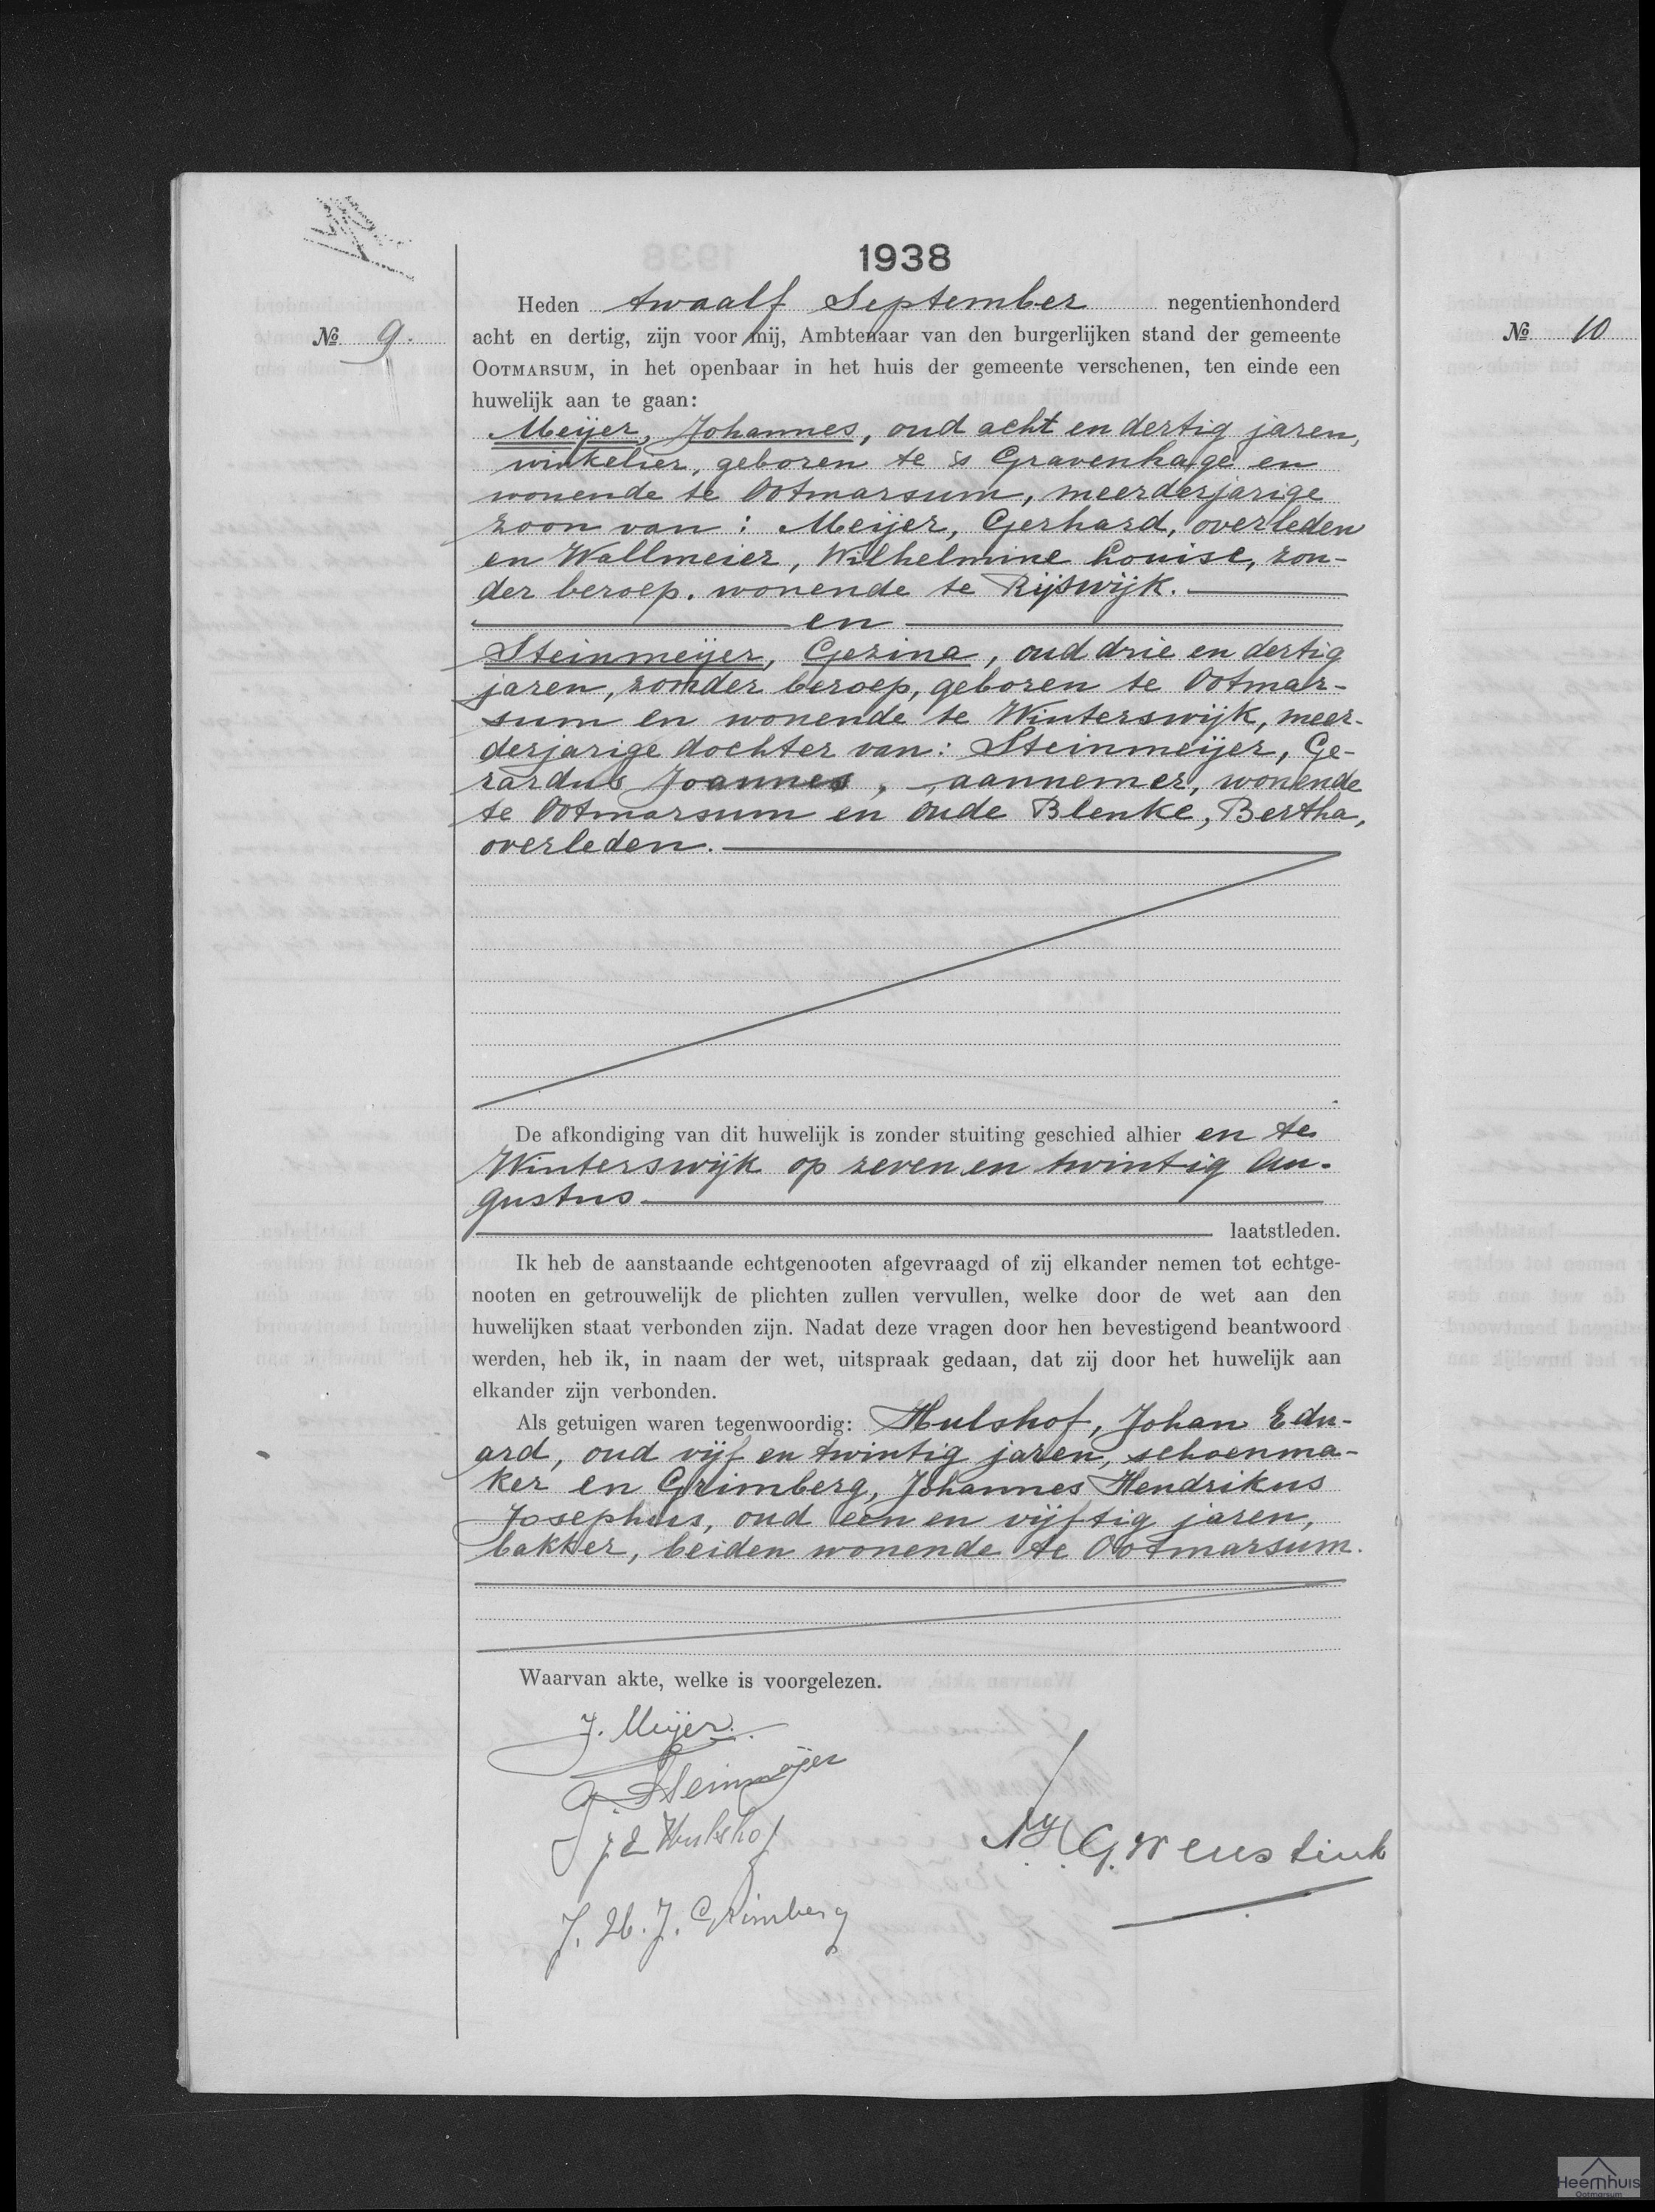 1938
Heden twaalf September negentienhonderd
No 9.
acht en dertig, zijn voor mij, Ambtenaar van den burgerlijken stand der gemeente
OOTMARSUM, in het openbaar in het huis der gemeente verschenen, ten einde een
huwelijk aan te gaan:
Meijer, Johannes, oud acht en dertig jaren,
winkelier, geboren te 's Gravenhage en
wonende te Ootmarsum, meerderjarige
zoon van: Meijer, Gerhard, overleden
en Wallmeier, Wilhelmine Louise, zon-
der beroep. wonende te Rijswijk.
en
Steinmeijer, Gezina, oud drie en dertig
jaren, zonder beroep, geboren te Ootmar-
sum en wonende te Winterswijk, meer-
derjarige dochter van: Steinmeijer, Ge-
rardus Joannes, -, aannemer, wonende
te Ootmarsum en Oude Blenke, Bertha,
overleden.
De afkondiging van dit huwelijk is zonder stuiting geschied alhier en te
Winterswijk op zeven en twintig Au-
gustus
laatstleden.
Ik heb de aanstaande echtgenooten afgevraagd of zij elkander nemen tot echtge-
nooten en getrouwelijk de plichten zullen vervullen, welke door de wet aan den
huwelijken staat verbonden zijn. Nadat deze vragen door hen bevestigend beantwoord
werden, heb ik, in naam der wet, uitspraak gedaan, dat zij door het huwelijk aan
elkander zijn verbonden.
Als getuigen waren tegenwoordig: Hulshof, Johan Edu-
ard, oud vijf en twintig jaren, schoenma-
ker en Grimberg, Johannes Hendrikus
Josephus, oud een en vijftig jaren,
bakker, beiden wonende te Ootmarsum.
Waarvan akte, welke is voorgelezen.
J. Meijer.
G. Steinmeijer
J E Hulshof
G. Weustink
J. H. J. Grimberg
No 10
Heemhuis
Ootmarsum